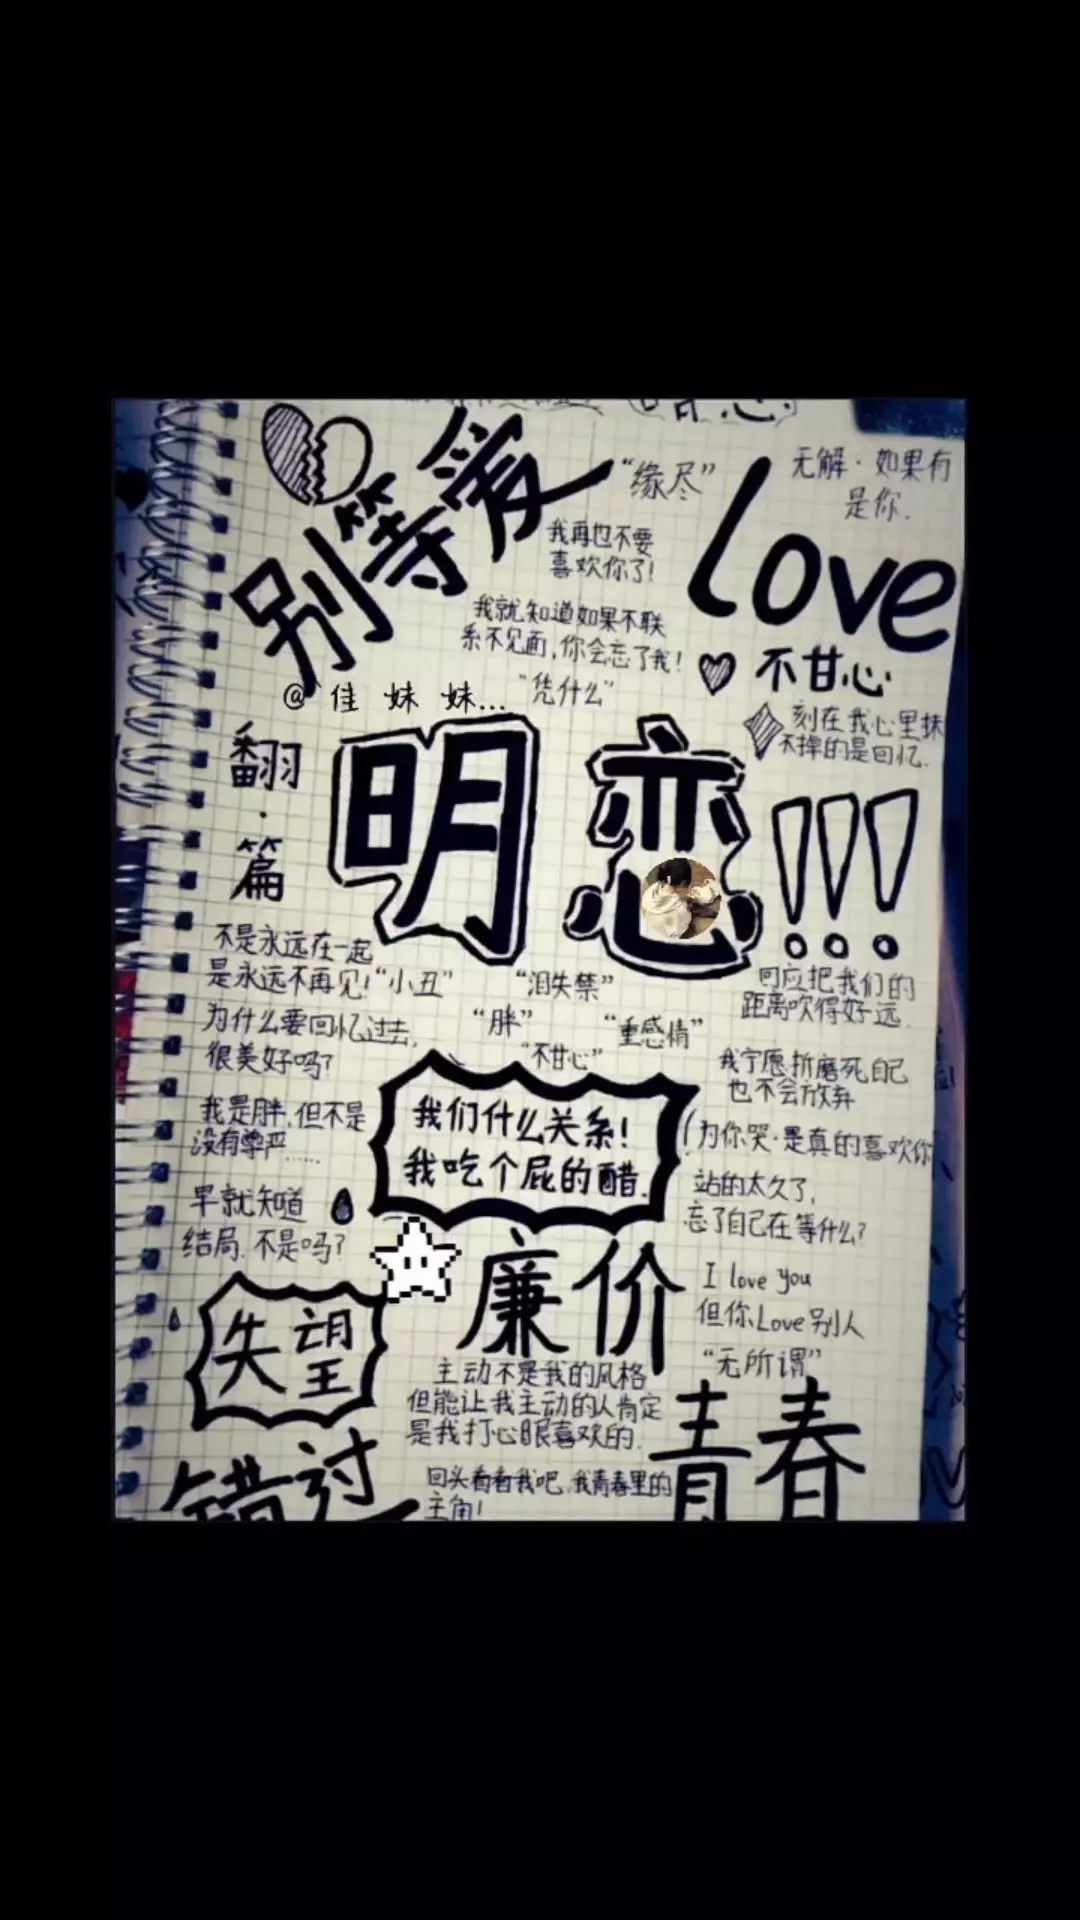 别等爱
"缘尽"
无解·如果有
是你.
Love
我再也不要
喜欢你了!
我就知道如果不联
系不见面,你会忘了我!
@佳妹妹...
"凭什么"
不甘心
刻在我心里抹
不掉的是回忆.
翻·篇
明恋!!!
不是永远在一起
是永远不再见!
"小丑"
"泪失禁"
为什么要回忆过去,
很美好吗?
"胖"
"重感情"
"不甘心"
回应把我们的
距离吹得好远.
我宁愿折磨死自己
也不会放弃
我是胖,但不是
没有尊严......
我们什么关系!
我吃个屁的醋.
为你哭·是真的喜欢你
站的太久了,
忘了自己在等什么?
早就知道
结局.不是吗?
廉价
I love you
但你Love别人
"无所谓"
失望
主动不是我的风格
但能让我主动的人肯定
是我打心眼喜欢的.
青春
错过
回头看看我吧,我青春里的
主角!